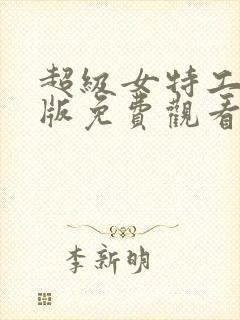 超級女特工
版免費觀看
李新明